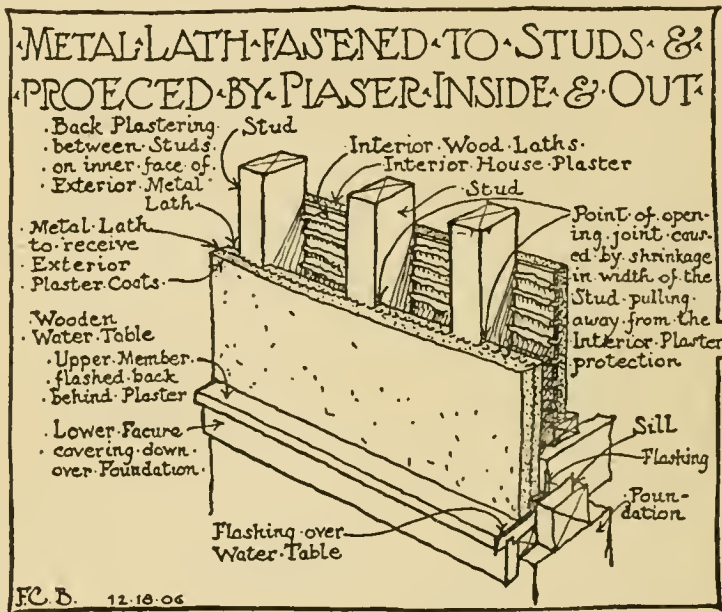 ·METAL·LATH·FASTENED·TO·STUDS·&·
·PROECED·BY·PLASER·INSIDE·&·OUT·
·Back Plastering
·between·Studs
·on·inner·face·of
·Exterior·Metal
Lath
Stud
Interior·Wood·Laths·
Interior·House·Plaster
Stud
Point·of·open-
ing·joint·caus-
ed·by·shrinkage
in·width·of·the
Stud·pulling·
away·from·the
Interior·Plaster
protection
·Metal·Lath
to·receive
Exterior
·Plaster·Coats
·Wooden
Water·Table
·Upper·Member
·flashed·back
behind·Plaster
·Lower·Facure
·covering·down
over·Foundation·
Sill
Flashing
Foun-
dation·
Flashing·over
Water·Table
F.C.B. 12·18·06